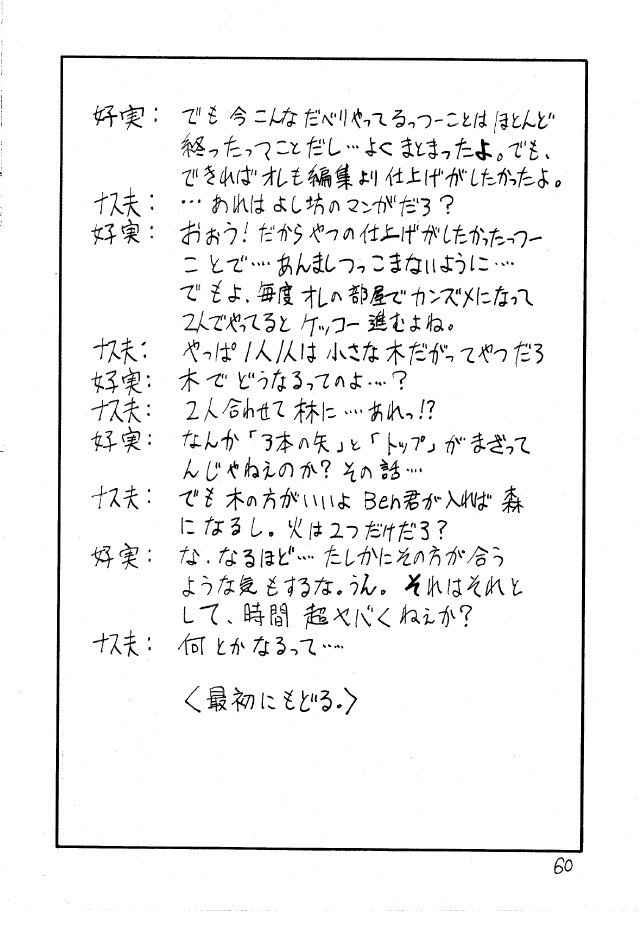 好実： でも 今 こんな だべりやってるっつーことは ほとんど
終ったってことだし…よくまとまったよ。でも、
できればオレも編集より仕上げがしたかったよ。
ナス夫： …あれはよし坊のマンガだろ？
好実： おぉう！だからやつの仕上げがしたかったっつー
ことで‥‥あんましつっこまないように‥‥
でもよ、毎度オレの部屋でカンズメになって
2人でやってるとケッコー進むよね。
ナス夫： やっぱ1人1人は小さな木だがってやつだろ
好実： 木でどうなるってのよ‥‥？
ナス夫： 2人合わせて林に‥‥あれっ!?
好実： なんか「3本の矢」と「トップ」がまざって
んじゃねえのか？その話‥‥
ナス夫： でも木の方がいいよ Ben君が入れば森
になるし。火は2つだけだろ？
好実： な、なるほど‥‥たしかにその方が合う
ような気もするな。うん。それはそれと
して、時間 超ヤバくねぇか？
ナス夫： 何とかなるって‥‥
〈最初にもどる。〉
60